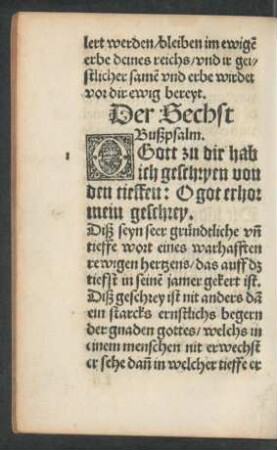 lert werden/bleiben im ewigẽ
erbe deines reichs/vnd ir gey/
stlicher samẽ vnd erbe wirdet
vor dir ewig bereyt.
Der Sechst
Bußpsalm.
1 O Gott zu dir hab
ich geschryen von
den tieffen: O got erhor
mein geschrey.
Diß seyn seer gründtliche vñ
tieffe wort eines warhafften
rewigen hertzens/das auff dz
tieffst in seinẽ jamer gekert ist.
Diß geschrey ist nit anders dañ
ein starcks ernstlichs begern
der gnaden gottes/welchs in
einem menschen nit erwechst
er sehe dañ in welcher tieffe er